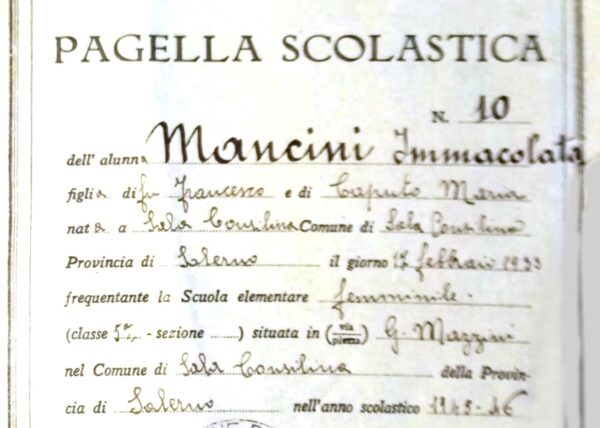 PAGELLA SCOLASTICA
N. 10
dell' alunna Mancini Immacolata
figlia di fu Francesco e di Caputo Maria
nata a Sala Consilina Comune di Sala Consilina
Provincia di Salerno il giorno 17 febbraio 1933
frequentante la Scuola elementare femminile.
(classe 5ª - sezione ........) situata in (via/piazza) G. Mazzini
nel Comune di Sala Consilina della Provin-
cia di Salerno nell'anno scolastico 1945-46